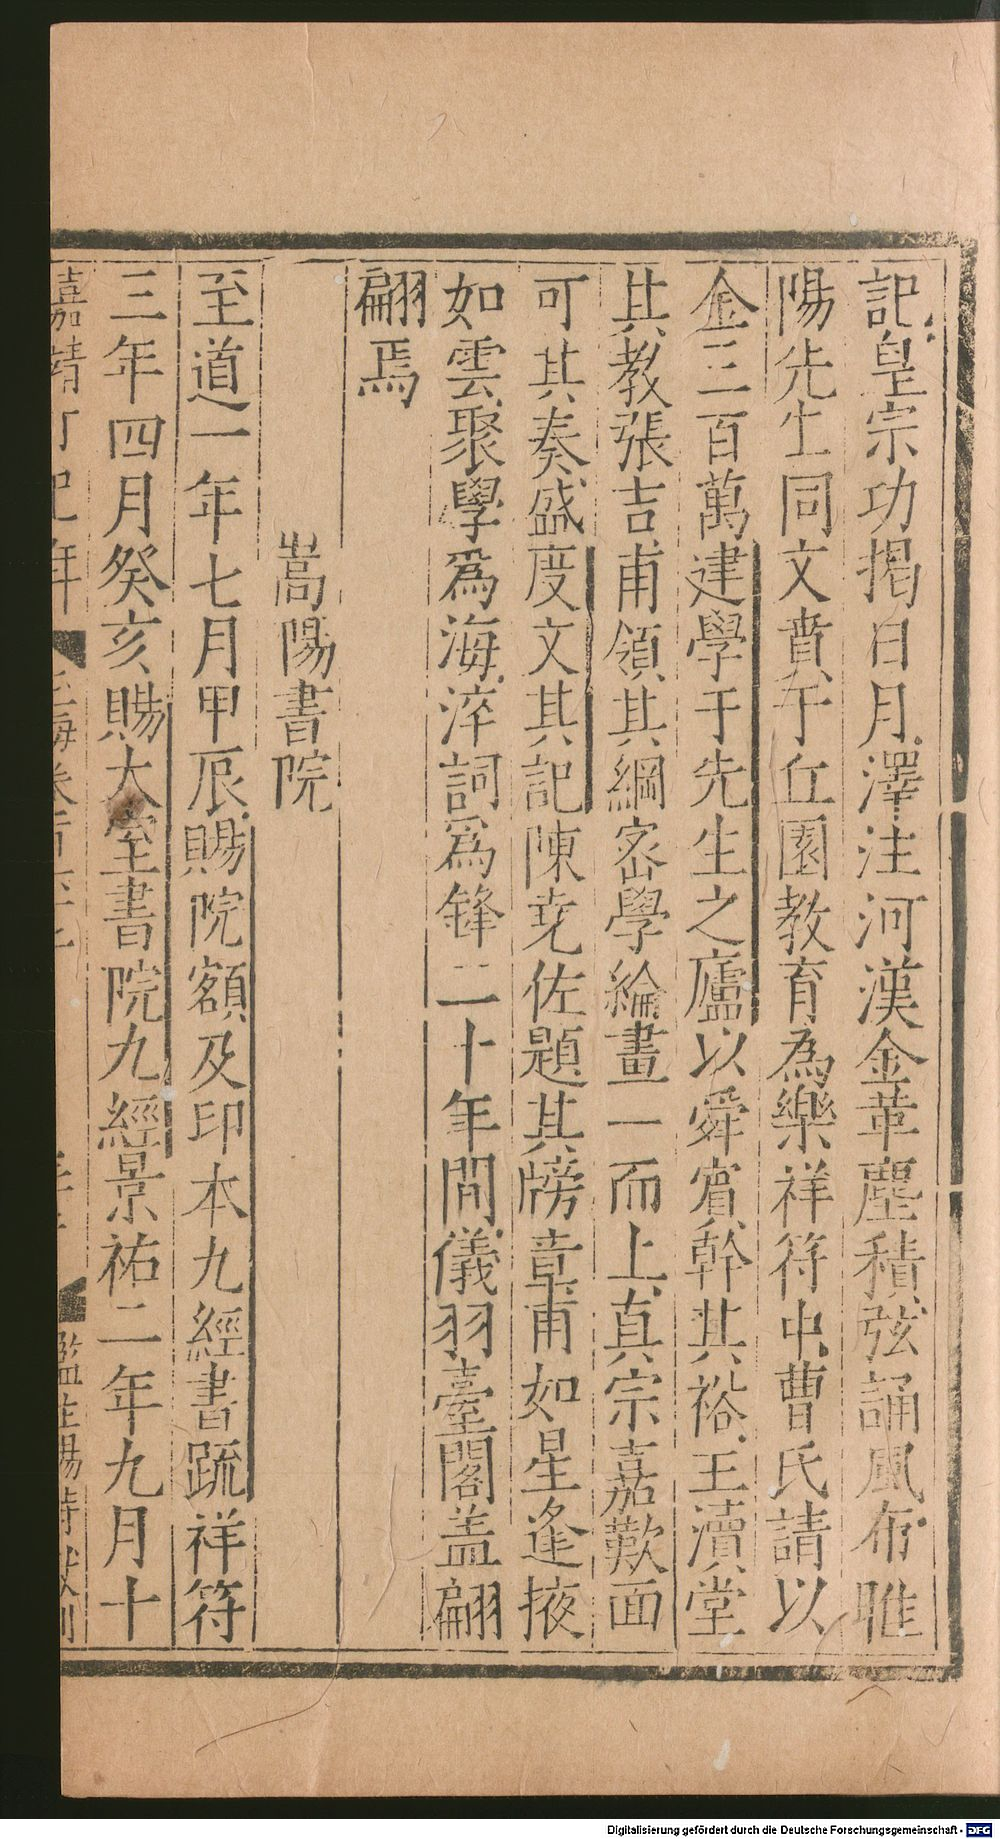 記皇宗功揭日月澤注河漢金華塵積弦誦風布睢
陽先生同文賁于丘園教育為樂祥符中曹氏請以
金三百萬建學于先生之廬以舜賓幹其裕王瀆堂
其教張吉甫領其綱宻學綸畫一而上真宗嘉歎面
可其奏盛度文其記陳尭佐題其牓章甫如星逢掖
如雲聚學爲海淬詞爲鋒二十年間儀羽臺閣盖翩
翩焉
嵩陽書院
至道一年七月甲辰賜院額及印本九經書䟽祥符
三年四月癸亥賜大室書院九經景祐二年九月十
嘉靖 年 海卷百六十 監生 刊
Digitalisierung gefördert durch die Deutsche Forschungsgemeinschaft - DFG